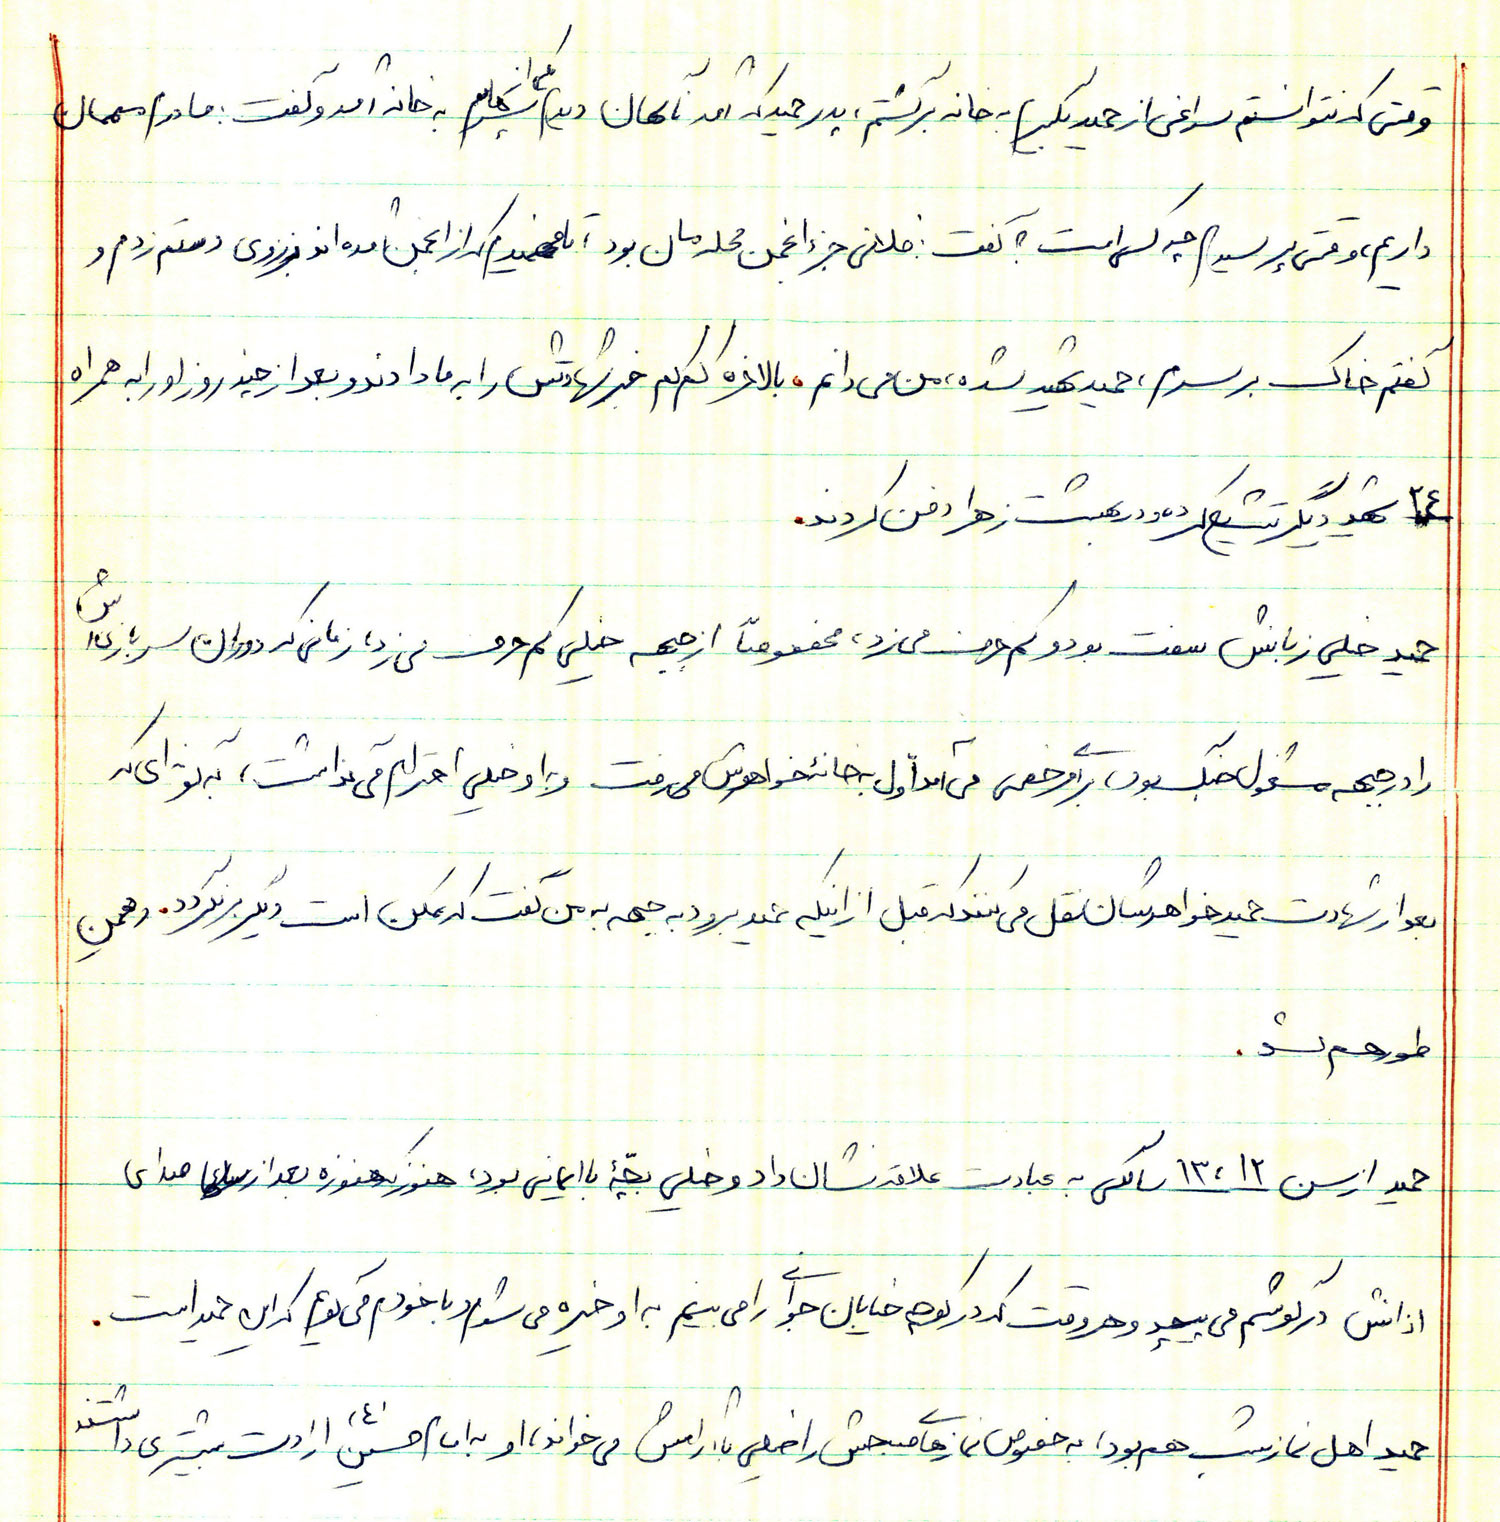 وقتی که نتوانستم سراغی از حمید بگیرم به خانه برگشتم، پدر حمید که آمد ناگهان دیدم یکی از پسرهایم به خانه آمد و گفت: مادرم مهمان
داریم، وقتی پرسیدم چه کسی است؟ گفت: فلانی جزء انجمن محله مان بود، تا فهمیدم که از انجمن آمده اند بر روی دستم زدم و
گفتم خاک بر سرم، حمید شهید شده، من می دانم. بالاخره کم کم خبر شهادتش را به ما دادند و بعد از چند روز او را به همراه
۲۴ شهید دیگر تشییع کرده و در بهشت زهرا دفن کردند.
حمید خیلی زبانش سفت بود و کم حرف می زد، مخصوصاً از جبهه خیلی کم حرف می زد، زمانی که دوران سربازی اش
را در جبهه مشغول جنگ بود، برای مرخصی می آمد اول به خانۀ خواهرش می رفت و به او خیلی احترام می گذاشت، به گونه ای که
بعد از شهادت حمید خواهرشان نقل می کنند که قبل از اینکه حمید برود به جبهه به من گفت که ممکن است دیگر برنگردد. و همین
طور هم شد.
حمید از سن ۱۲، ۱۳ سالگی به عبادت علاقه نشان داد و خیلی بچّۀ با ایمانی بود، هنوز که هنوزه بعد از سالها صدای
اذانش در گوشم می پیچد و هر وقت که در کوچه خیابان جوانی را می بینم به او خیره می شوم و با خودم می گویم که این حمید است.
حمید اهل نماز شب هم بود، به خصوص نمازهای صبحش را خیلی با آرامش می خواند، او به امام حسین (ع) ارادت بیشتری داشتند